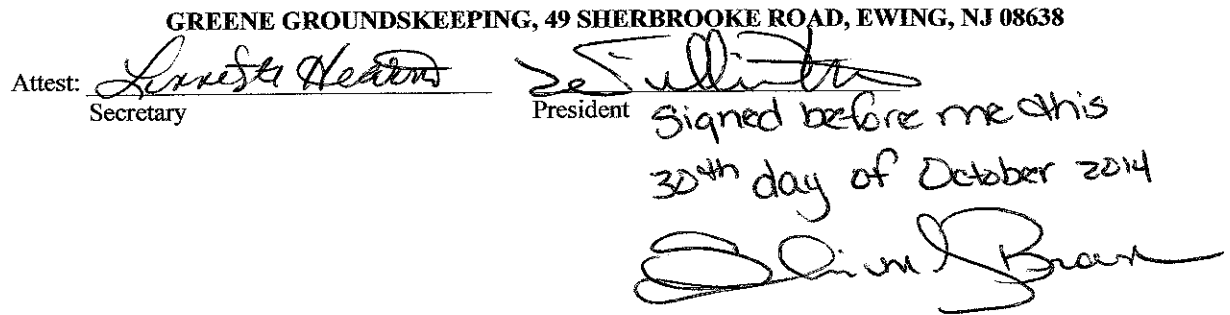 GREENE GROUNDSKEEPING, 49 SHERBROOKE ROAD, EWING, NJ 08638
Attest:
Secretary
President
Signed before me this
30th day of October 2014